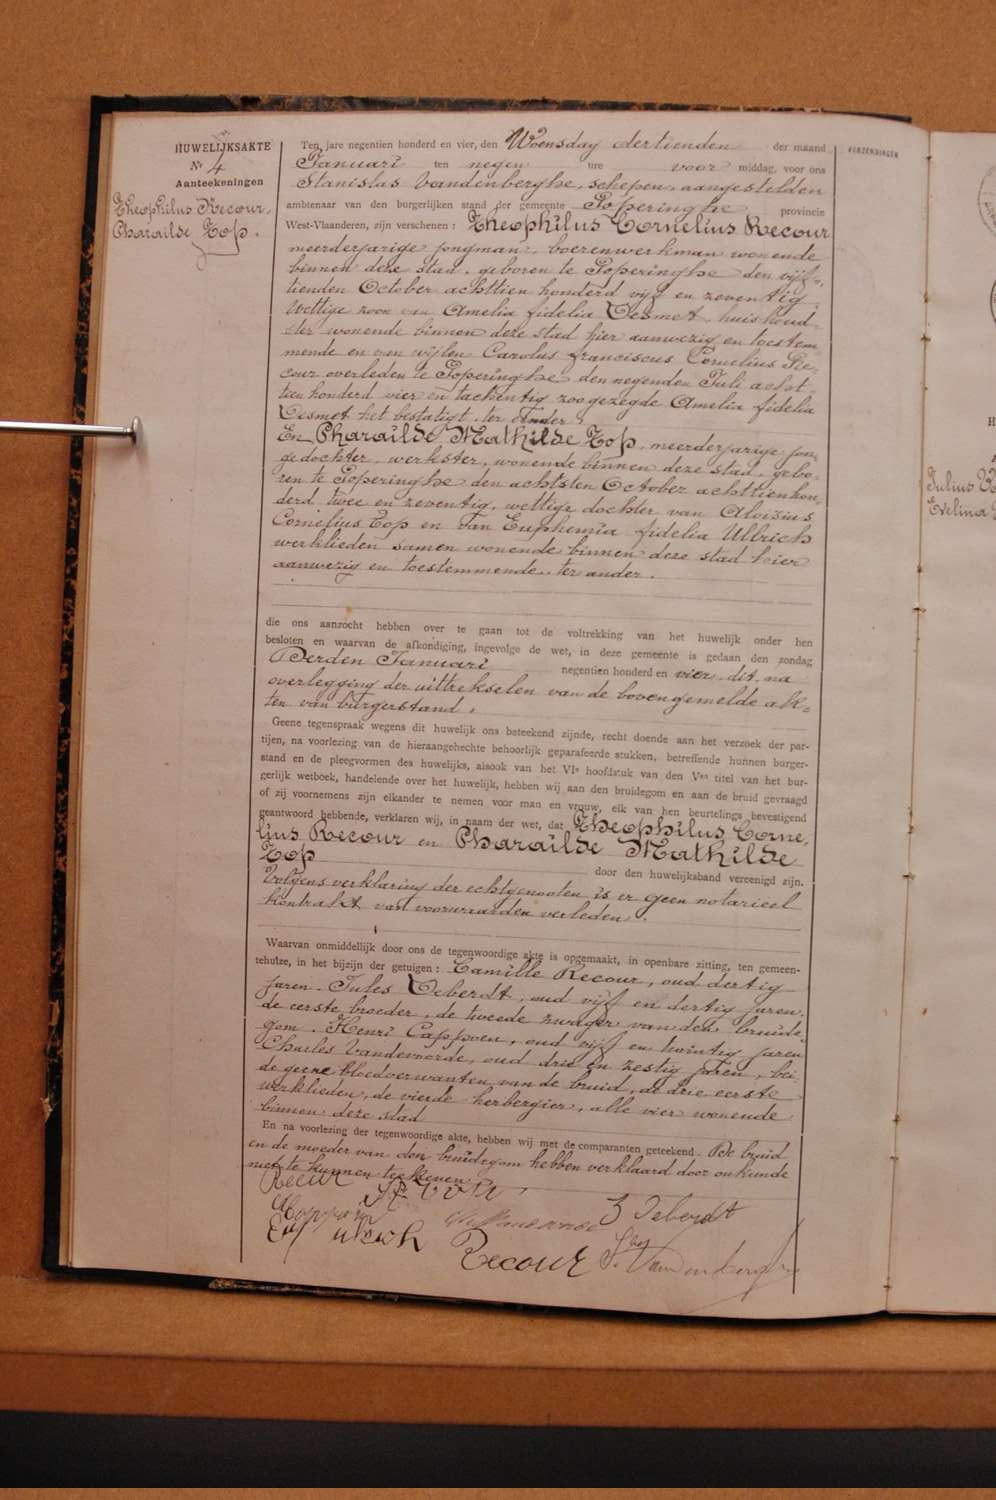 HUWELIJKSAKTE
Nr 4
Aanteekeningen
Theophilus Recour,
Pharailde Top.
Ten jare negentien honderd en vier, den Woensdag dertienden der maand
Januari ten negen ure voor middag, voor ons
Stanislas Vandenberghe, schepen, aangestelden
ambtenaar van den burgerlijken stand der gemeente Poperinghe provincie
West-Vlaanderen, zijn verschenen: Theophilus Cornelius Recour
meerderjarige jongman, boerenwerkman wonende
binnen deze stad, geboren te Poperinghe den vijf-
tienden October achttien honderd vijf en zeventig,
Wettige zoon van Amelia fidelia Desmet, huishoud-
ster wonende binnen deze stad hier aanwezig en toestem-
mende en van wijlen Carolus franciscus Cornelius Re-
cour overleden te Poperinghe den negenden Juli acht-
tien honderd vier en tachentig zoo gezegde Amelia fidelia
Desmet het bestatigt, ter eender,
En Pharailde Mathilde Top, meerderjarige jon-
ge dochter, werkster, wonende binnen deze stad, gebo-
ren te Poperinghe den achtsten October achttien hon-
derd twee en zeventig, wettige dochter van Aloisius
Cornelius Top en van Euphemia fidelia Ullrich
werklieden samen wonende binnen deze stad hier
aanwezig en toestemmende, ter ander.
die ons aanzocht hebben over te gaan tot de voltrekking van het huwelijk onder hen
besloten en waarvan de afkondiging, ingevolge de wet, in deze gemeente is gedaan den zondag
Derden Januari negentien honderd en vier, dit, na
overlegging der uittrekselen van de bovengemelde ak-
ten van burgerstand,
Geene tegenspraak wegens dit huwelijk ons beteekend zijnde, recht doende aan het verzoek der par-
tijen, na voorlezing van de hieraangehechte behoorlijk geparafeerde stukken, betreffende hunnen burger-
stand en de pleegvormen des huwelijks, alsook van het VIe hoofdstuk van den Ven titel van het bur-
gerlijk wetboek, handelende over het huwelijk, hebben wij aan den bruidegom en aan de bruid gevraagd
of zij voornemens zijn elkander te nemen voor man en vrouw, elk van hen beurtelings bevestigend
geantwoord hebbende, verklaren wij, in naam der wet, dat Theophilus Corne-
lius Recour en Pharailde Mathilde
Top door den huwelijksband vereenigd zijn.
Volgens verklaring der echtgenooten is er geen notarieel
kontrakt van voorwaarden verleden.
Waarvan onmiddellijk door ons de tegenwoordige akte is opgemaakt, in openbare zitting, ten gemeen-
tehuize, in het bijzijn der getuigen: Camille Recour, oud dertig
jaren, Jules Deberdt, oud vijf en dertig jaren,
de eerste broeder, de tweede zwager van den bruide-
gom, Henri Cappoen, oud vijf en twintig jaren
Charles Vandevoorde, oud drie en zestig jaren, bei-
de geene bloedverwanten van de bruid, de drie eerste
werklieden, de vierde herbergier, alle vier wonende
binnen deze stad
En na voorlezing der tegenwoordige akte, hebben wij met de comparanten geteekend. De bruid
en de moeder van den bruidegom hebben verklaard door onkunde
niet te kunnen teekenen,
J Deberdt
Recour
St. Vandenberghe
KENZENDINGEN
Julius
Evelina